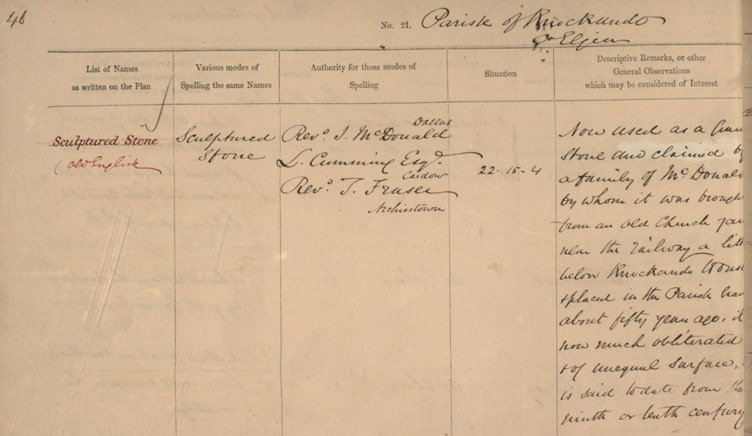 46
No. 21. Parish of Knockando
Co Elgin
List of Names
as written on the Plan
Various modes of
Spelling the same Names
Authority for those modes of
Spelling
Situation
Descriptive Remarks, or other
General Observations
which may be considered of Interest
Sculptured Stone
(Old English
Sculptured
Stone
Revd. J. McDonald
Dallas
L. Cumming Esqr.
Cardow
Revd. T. Fraser
Archiestown
22-15-4
Now used as a
Stone and claimed
a family of McDonald
by whom it was
from an old Church
near the Railway a
below Knockando House
& placed in the Parish
about fifty years ago,
now much obliterated
& of unequal surface,
is said to date from
ninth or tenth century